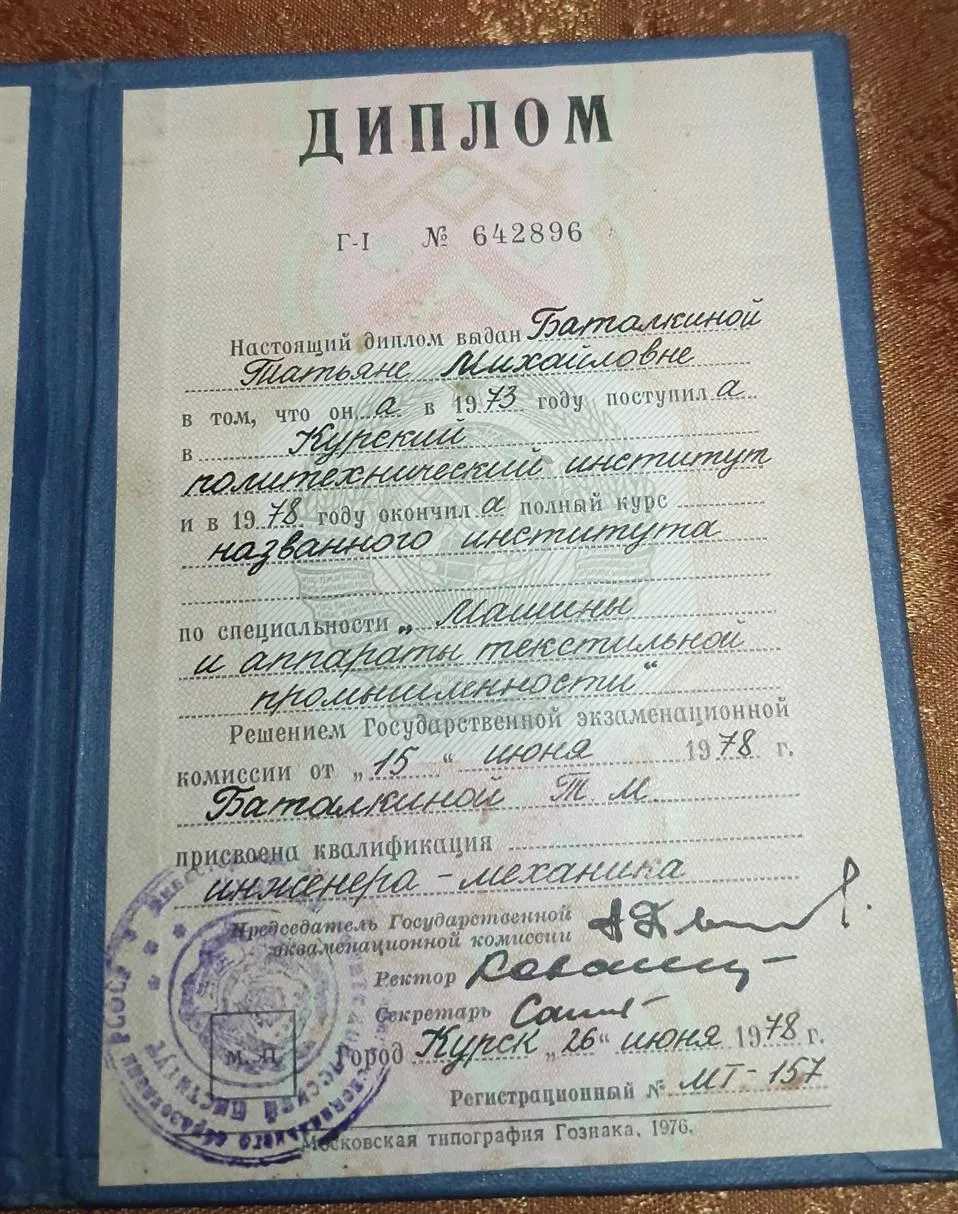 ДИПЛОМ
Г-I № 642896
Настоящий диплом выдан Баталкиной
Татьяне Михайловне
в том, что он а в 1973 году поступил а
в Курский
политехнический институт
и в 1978 году окончил а полный курс
названного института
по специальности „Машины
и аппараты текстильной
промышленности“
Решением Государственной экзаменационной
комиссии от „15“ июня 1978 г.
Баталкиной Т. М.
присвоена квалификация
инженера-механика
Председатель Государственной
экзаменационной комиссии
Ректор
Секретарь
М. П.
Город Курск „26“ июня 1978 г.
Регистрационный № МТ-157
Московская типография Гознака, 1976.